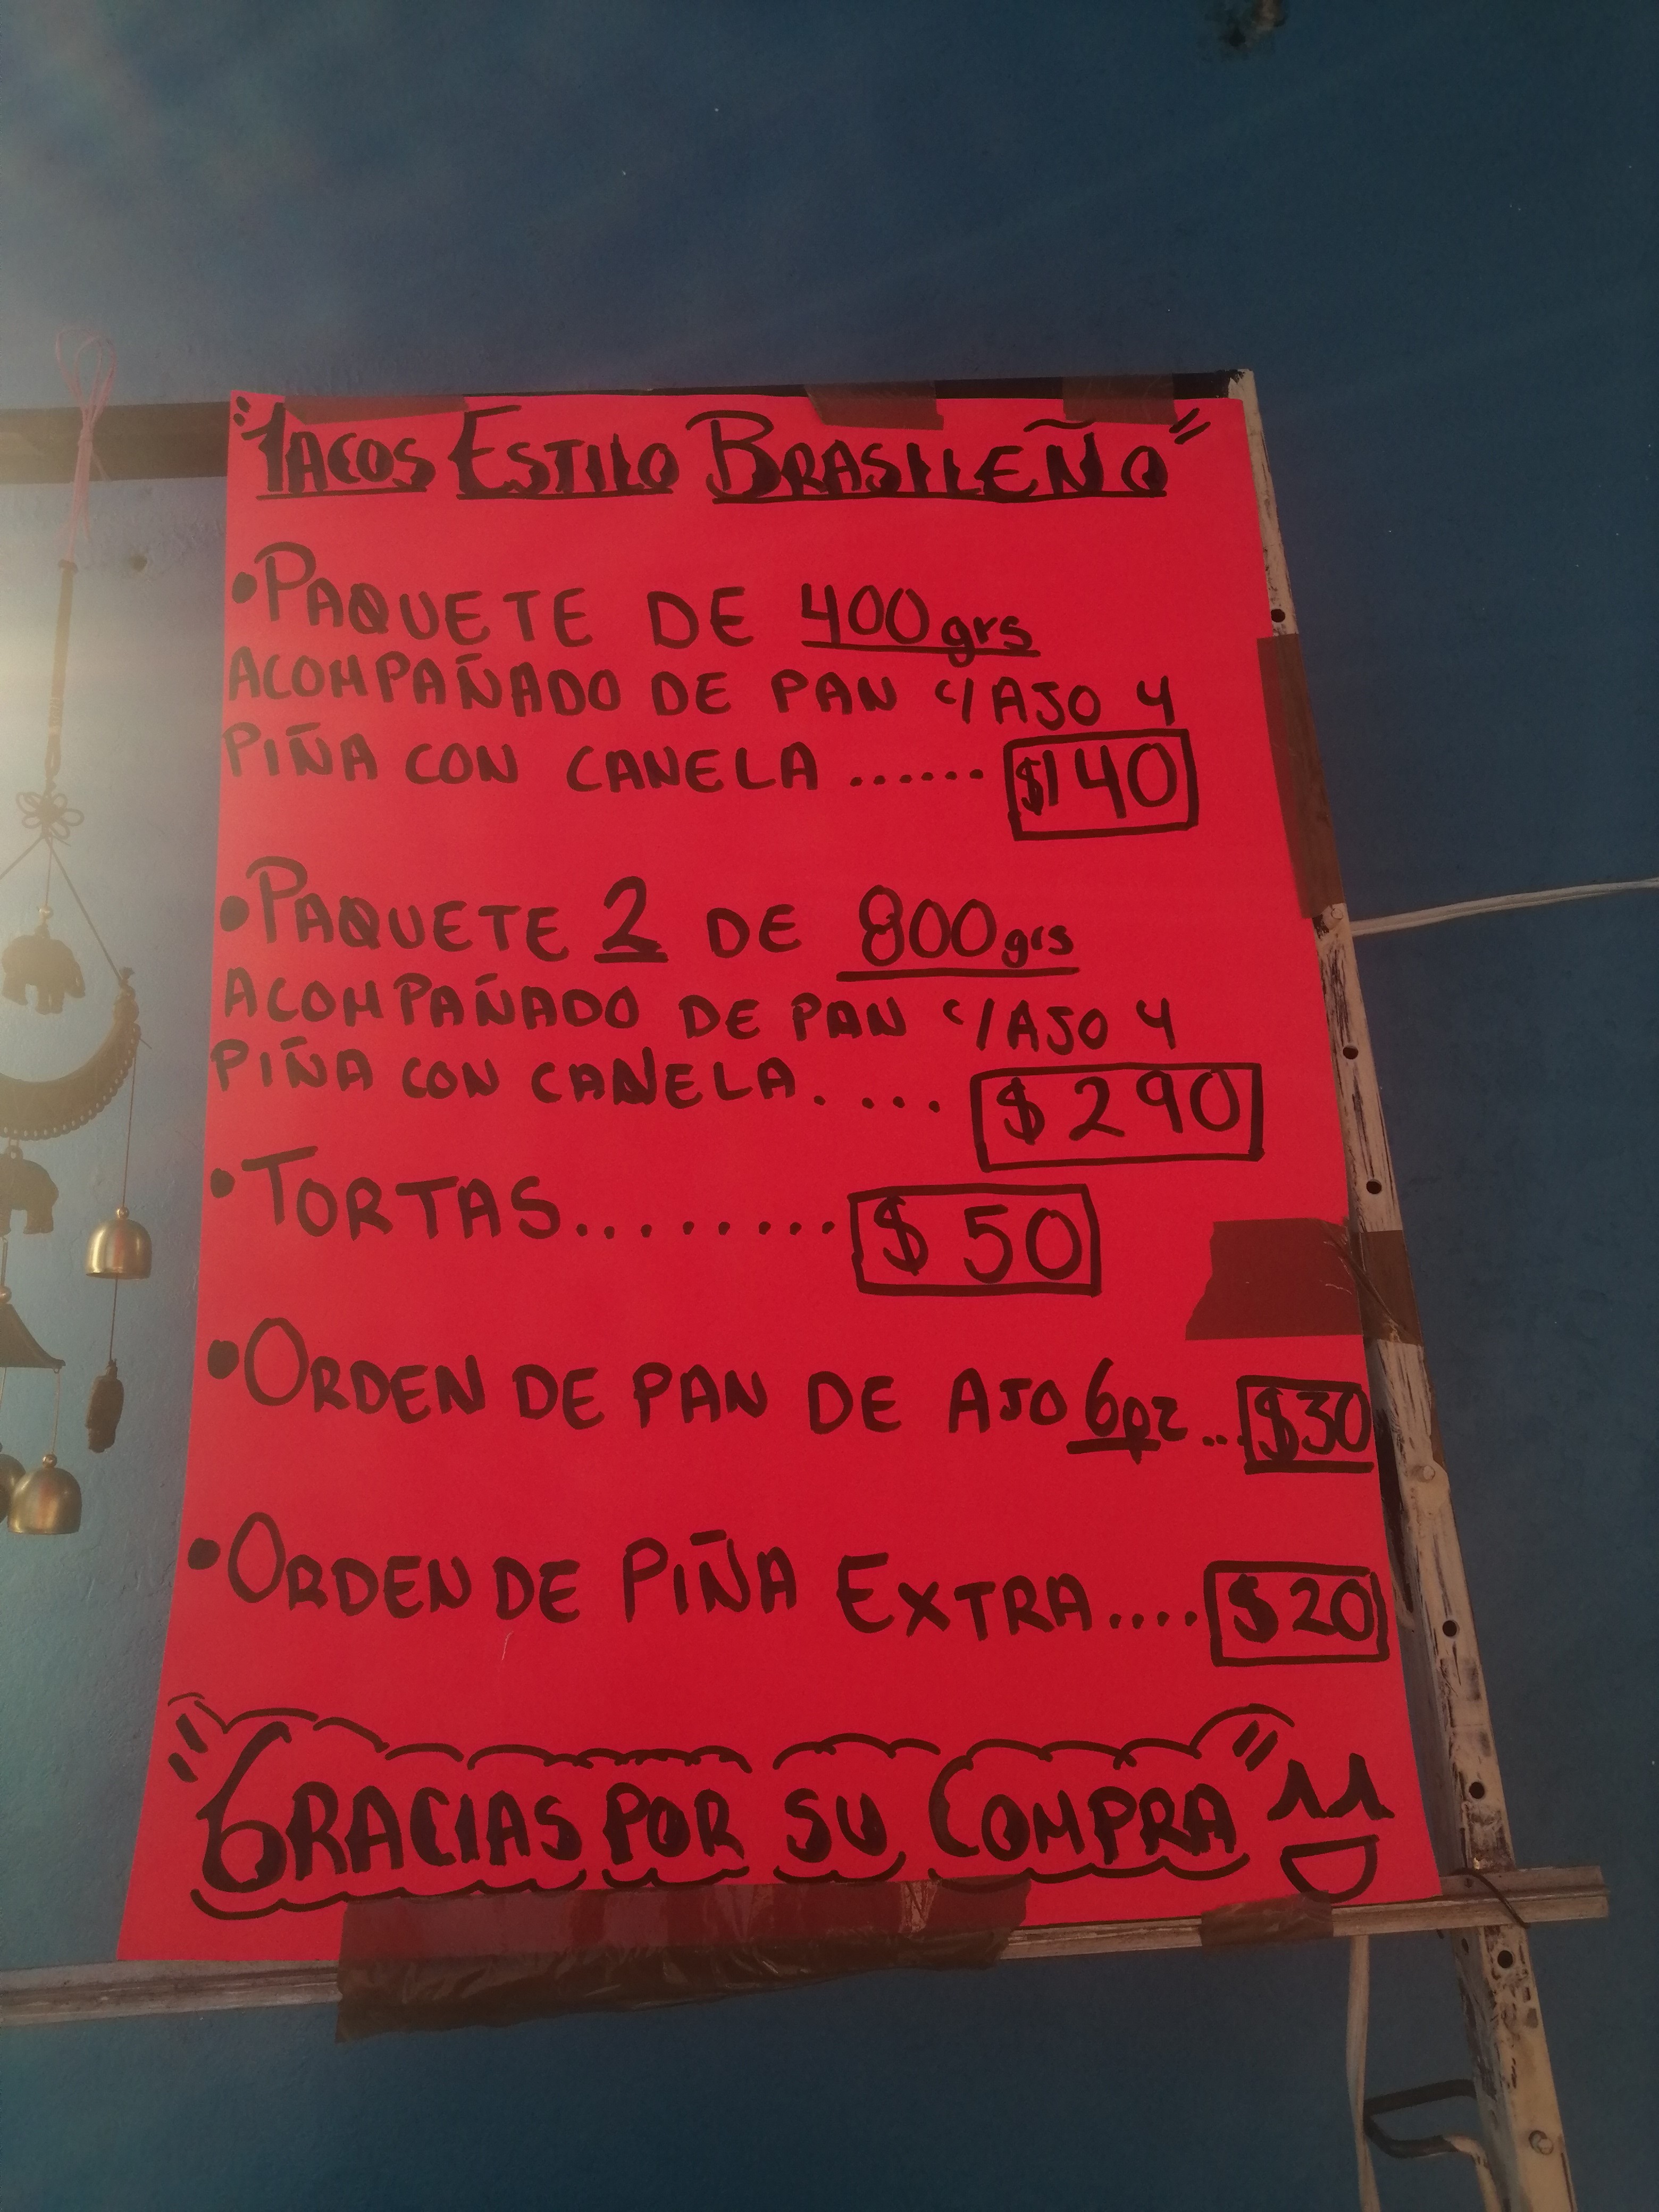 "Tacos Estilo Brasileño"
•Paquete de 400grs
acompañado de pan c/ajo y
piña con canela ...... $140
•Paquete 2 de 800grs
acompañado de pan c/ajo y
piña con canela. .... $290
•Tortas........ $50
•Orden de pan de ajo 6pz ... $30
•Orden de piña Extra.... $20
"Gracias por su Compra"